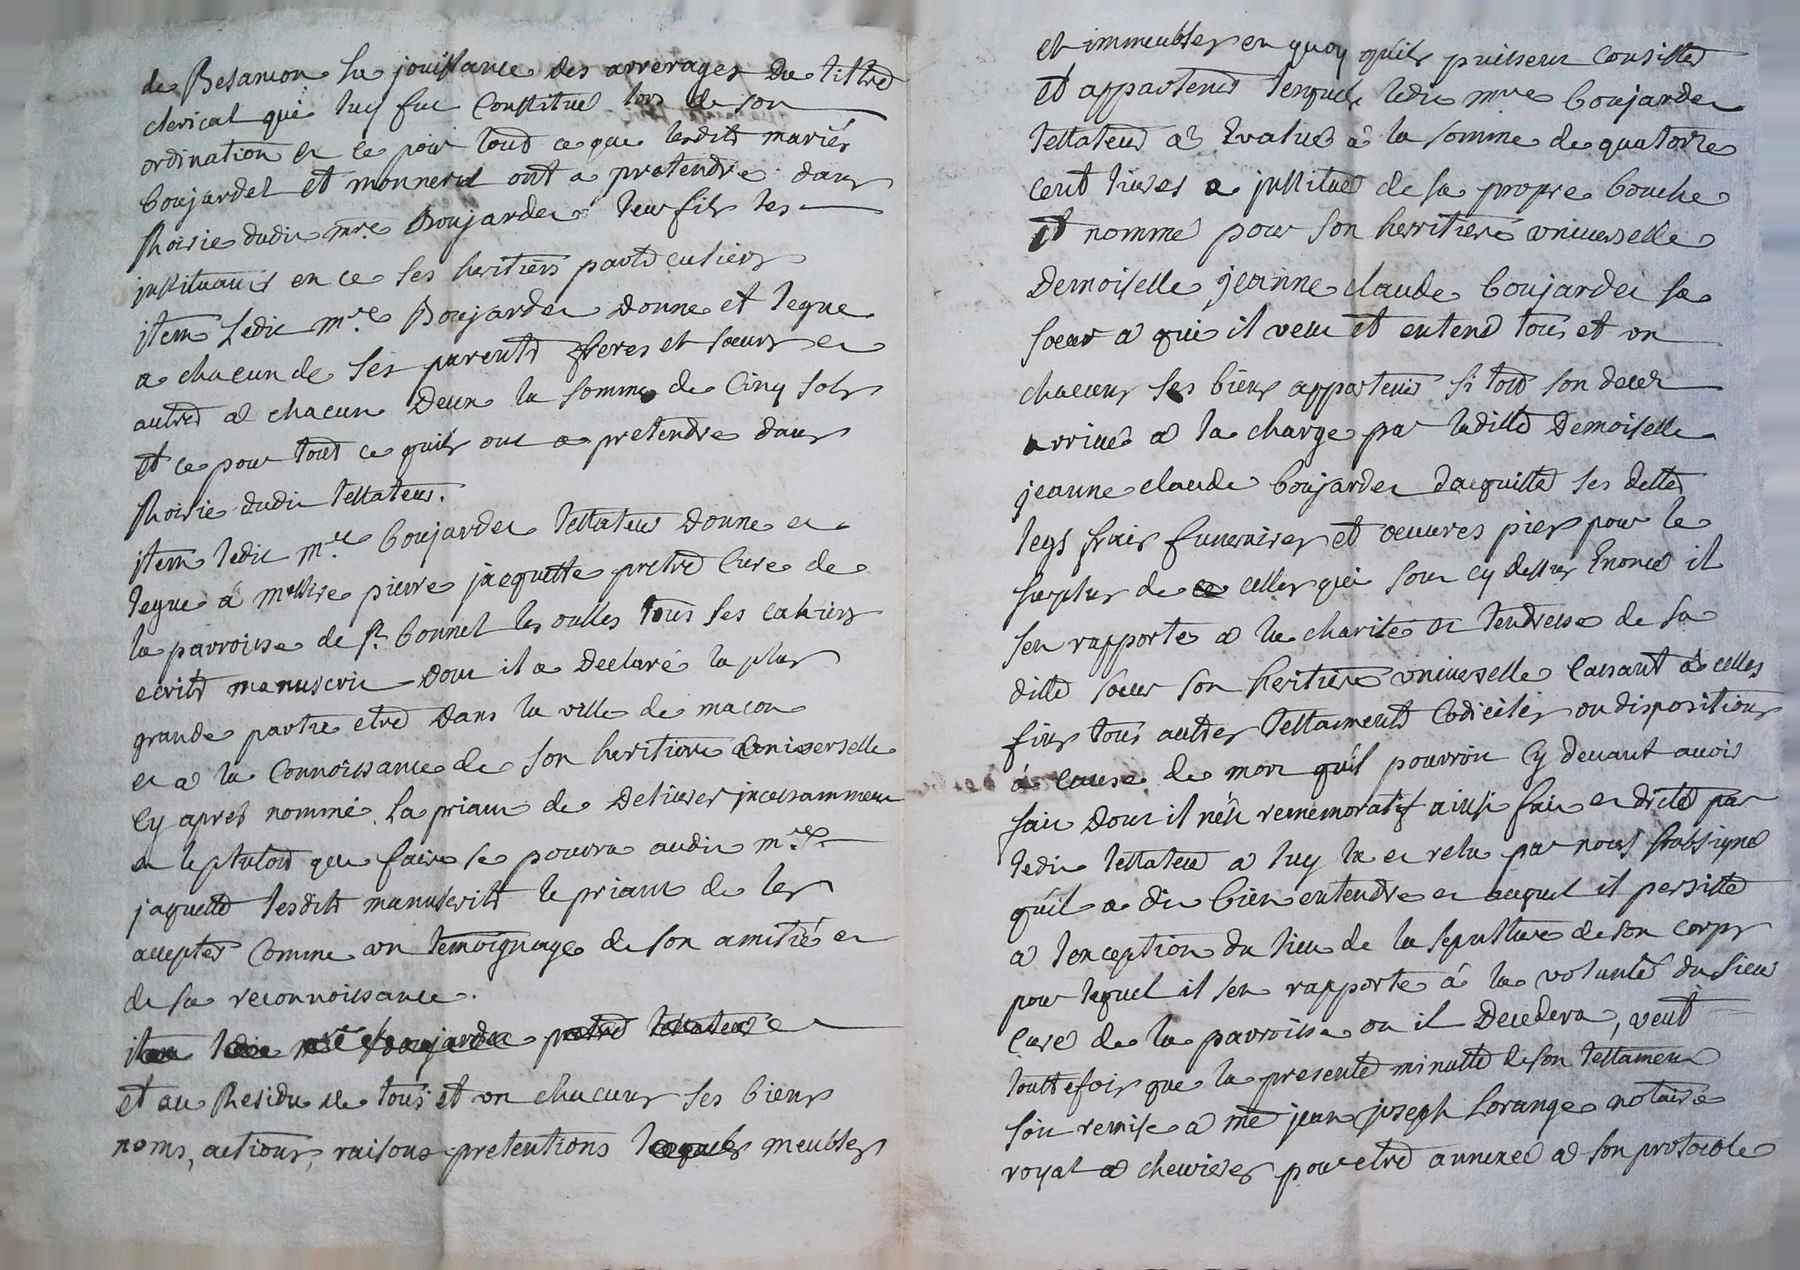 de Besancon la jouissance des arrerages du tittre
clerical qui luy fut constitué lors de son
ordination et ce pour tout ce que lesdits mariés
boujardet et monneret ont a pretendre dans
lhoirie dudit mre Boujardet leur fils les
instituants en ce ses heritiers particuliers
item Ledit mre Boujardet Donne et legue
a chacun de ses parents freres et soeurs et
autres a chacun Deux la somme de Cinq sols
et ce pour tout ce quils ont a pretendre dans
lhoirie dudit testateur.
item ledit mre boujardet testateur Donne et
legue a messire pierre jacquette pretre Cure de
la parroisse de st bonnet les oulles tous ses cahiers
ecrits manuscrit Dont il a Declaré la plus
grande partie etre Dans la ville de macon
et a la Connoissance de son heritiere universelle
Cy apres nommé. La priant de Delivrer incessamment
et le plutost que faire se pourra audit mre
jaquette lesdits manuscrits le priant de les
accepter Comme un temoignage de son amitié et
de sa reconnoissance.
item ledit mre boujardet pretre testateur et
et au Residu de tous et un chacuns ses biens
noms, actions, raisons pretentions lesquels meubles
et immeubles en quoy quils puissent consister
et appartenir lesquels ledit mre boujardet
testateur a Evalué a la somme de quatorze
cent livres a institué de sa propre bouche
et nommé pour son herritiere universelle
Demoiselle jeanne claude boujardet sa
soeur a qui il veut et entend tous et un
chacuns ses biens appartenir si tost son decer
arrivé a la charge par laditte Demoiselle
jeanne claude boujardet dacquitter ses dettes
legs frais funeraires et oeuvres pies pour le
surplus de ce celles qui sont cy dessus Enoncé il
sen rapporte a la charité et tendresse de sa
ditte soeur son heritiere universelle Cassant a celles
fins tous autres testaments Codiciles ou dispositions
á Cause de mort quil pourroit Cy devant avoir
fait Dont il nést rememoratif ainsi fait et dicté par
ledit testateur a luy lu et relu par nous soubsigné
quil a dit bien entendre et auquel il persiste
a lexception du lieu de la sepulture de son corps
pour lequel il sen rapporte á la volunté du sieur
Curé de la parroisse ou il Decedera, veut
touttefois que la presente minutte de son testament
soit remise a me jean joseph Lorange notaire
royal a chevrieres pour etre annexée a son protocole